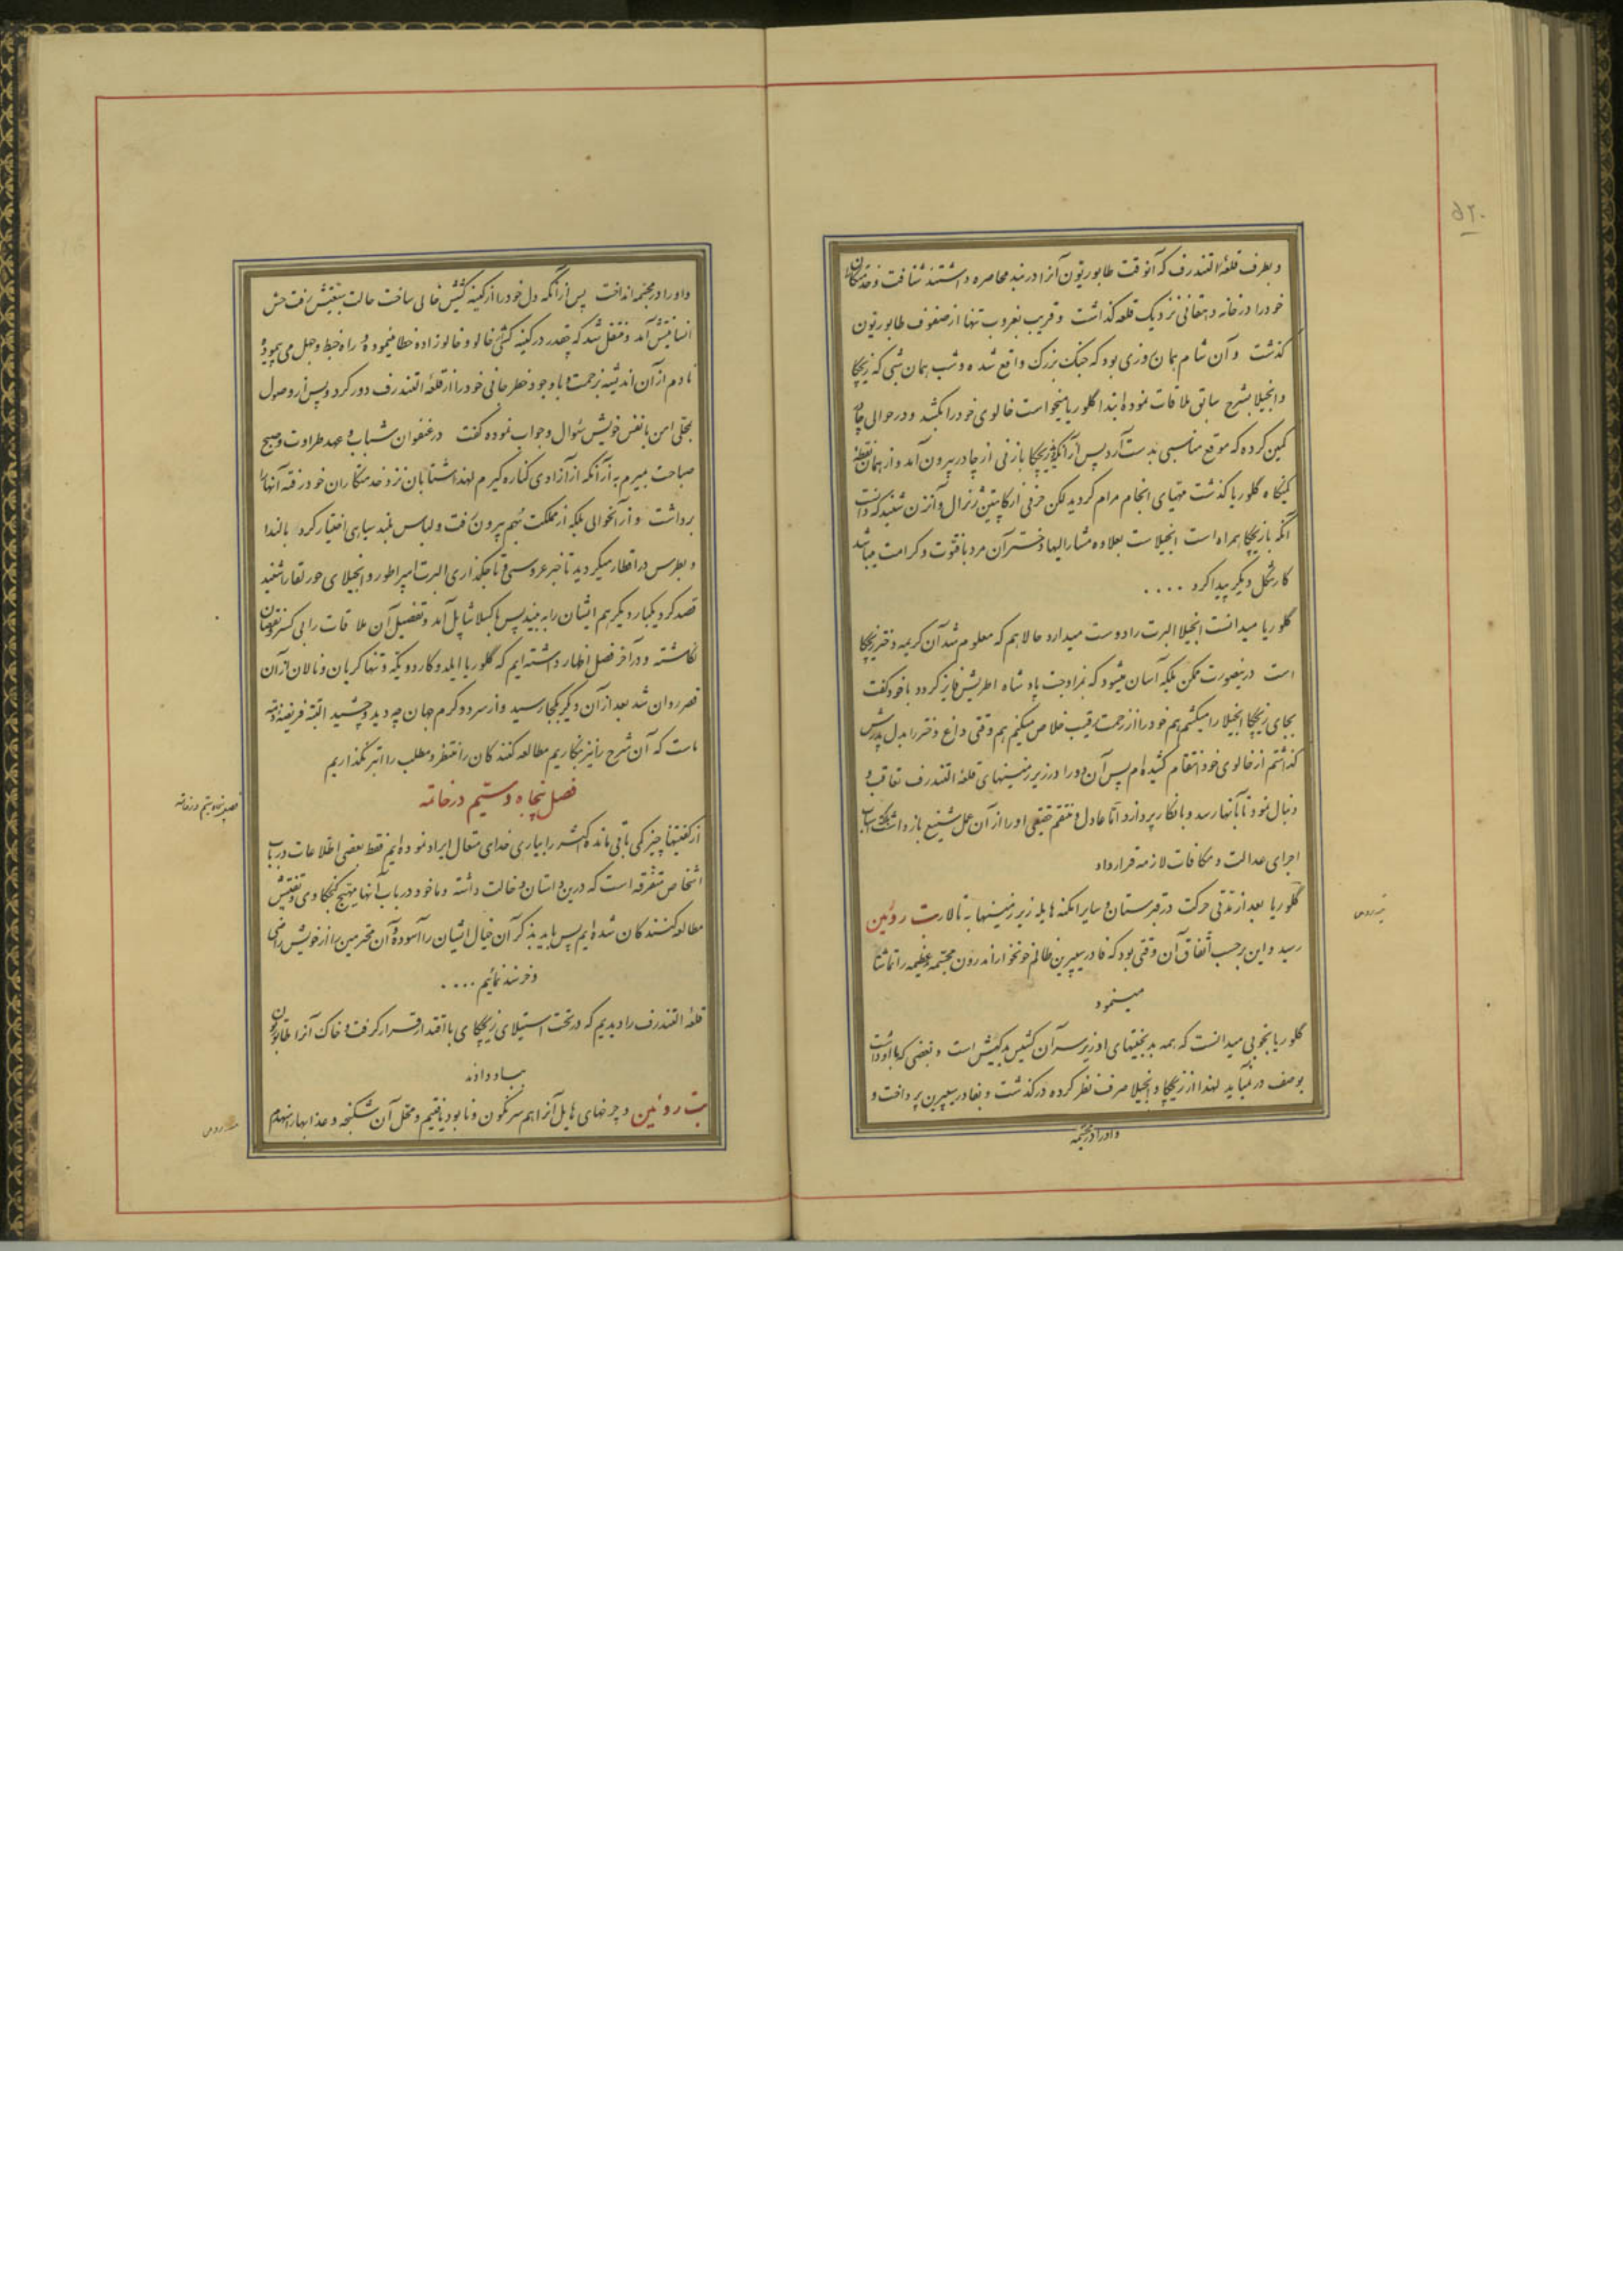 و بطرف قلعهٔ التندرف که آنوقت طابوریتون آنرا در بند محاصره داشتند شتافت و خدمتکاران
خود را در خانه دهقانی نزدیک قلعه گذاشت و قریب بغروب تنها از صفوف طابوریتون
گذشت و آن شام همان روزی بود که جنک بزرک واقع شده و شب همان شبی که زیچکا
و انجیلا بشرح سابق ملاقات نموده ابتدا گلوریا میخواست خالوی خود را بکشد و در حوالی چادر
کمین کرده که موقع مناسبی بدست آرد پس از آنکه زیچکا با زنی از چادر بیرون آمد و از همان نقطه
کمینگاه گلوریا گذشت مهیای انجام مرام گردید لکن حرفی از کاپیتن ژنرال و آنزن شنید که دانست
آنکه با زیچکا همراه است انجیلاست بعلاوه مشارالیها دختر آن مرد با فتوت و کرامت میباشد
کار شکل دیگر پیدا کرد ....
گلوریا میدانست انجیلا البرت را دوست میدارد حالا هم که معلوم شد آن کریمه دختر زیچکا
است درینصورت ممکن بلکه آسان میشود که بمزاوجت پادشاه اطریش فایز گردد با خود گفت
بجای زیچکا انجیلا را میکشم هم خود را از زحمت رقیب خلاص میکنم هم وقتی داغ دختر را بدل پدرش
گذاشتم از خالوی خود انتقام کشیده‌ام پس آن دو را در زیر زمینهای قلعهٔ التندرف تعاقب و
دنبال نمود تا بآنها رسد و بانکار پردازد اما عادل و منتقم حقیقی او را از آن عمل شنیع باز داشت بلکه اسباب
اجرای عدالت و مکافات لازمه قرار داد
گلوریا بعد از مدتی حرکت در قبرستان و سایر امکنه هایلهٔ زیر زمینها به تالار بت روئین
رسید و این برحسب اتفاق آن وقتی بود که فادر سیپرین ظالم خونخوار اندرون مجسمه عظیمه را تماشا
مینمود
گلوریا بخوبی میدانست که همه بدبختیهای او زیر سر آن کشیش بدکیش است و بغضی که با او داشت
بوصف در نمیآید لهذا از زیچکا و انجیلا صرف نظر کرده درگذشت و بفادر سیپرین پرداخت و
و او را در مجسمه
و او را در مجسمه انداخت پس از آنکه دل خود را از کینه کشیش خالی ساخت حالت بنفسش رفت حس
انسانیتش آمد و منفعل شد که چقدر در کینه کشی خالو و خالوزاده خطا مینموده و راه خبط و جهل می پیموده
نادم از آن اندیشه بزحمت و با وجود خطر جانی خود را از قلعهٔ التندرف دور کرد و پس از وصول
بمحلی امن با نفس خویش سئوال و جواب نموده گفت در عنفوان شباب و عهد طراوت و صبح
صباحت بمیرم به از آنکه از آزادی کناره گیرم لهذا شتابان نزد خدمتکاران خود رفته آنها را
برداشت و از آنحوالی بلکه از مملکت بهم بیرون رفت و لباس بلند سیاهی اختیار کرد بالندا
و بطرس در اقطار میگردید تا خبر عروسی و تاجگذاری البرت امپراطور و انجیلای حور لقا را شنید
قصد کرد یکبار دیگر هم ایشان را به بیند پس باکسلاشاپل آمد و تفصیل آن ملاقات را بی کسر و نقصان
نگاشته و در آخر فصل اظهار داشته‌ایم که گلوریا ایلده گارد و یکه و تنها گریان و نالان از آن
قصر روان شد بعد از آن دیگر بکجا رسید و از سرد و گرم جهان چه دید و چشید البته فریضهٔ ذمه
ماست که آن شرح را نیز بنگاریم مطالعه کنندگان را منتظر و مطلب را ابتر نگذاریم
فصل پنجاه و ستیم در خاتمه
از گفتنیها چیز کمی باقی مانده اکثر را بیاری خدای متعال ایراد نموده‌ایم فقط بعضی اطلاعات در باب
اشخاص متفرقه است که درین داستان دخالت داشته و ما خود در باب آنها مهیج کنجکاوی و تفتیش
مطالعه کنندگان شده‌ایم پس باید بذکر آن خیال ایشان را آسوده و آن محترمین را از خویش راضی
و خرسند نمائیم ....
قلعهٔ التندرف را دیدیم که در تحت استیلای زیچکای با اقتدار قرار گرفت و خاک آنرا طابوریتون
بباد دادند
بت روئین و چرخهای هایل آنرا هم سرنگون و نابود یافتیم و محل آن شکنجه و عذابها را منهدم